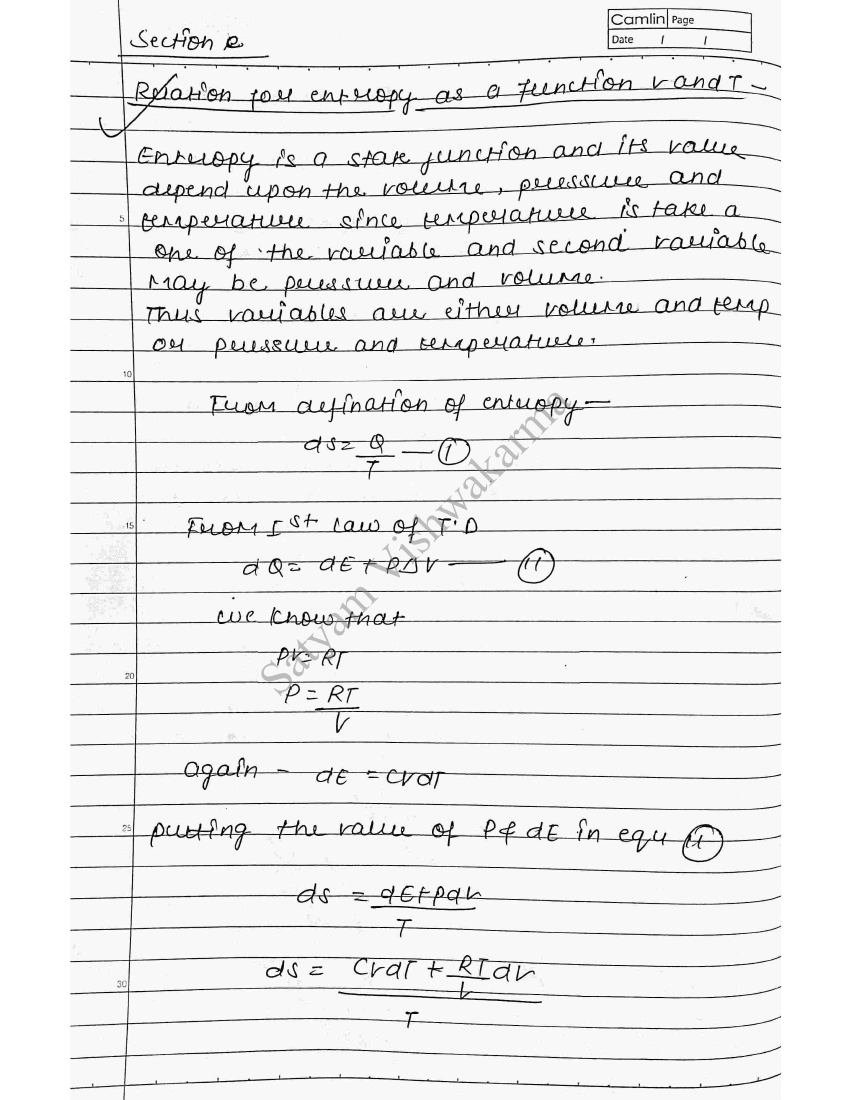 Section e
Camlin Page
Date / /
Relation for entropy as a function V and T -
Entropy is a state function and its value
depend upon the volume, pressure and
5 temperature since temperature is take a
one of the variable and second variable
May be pressure and volume.
Thus variables are either volume and temp
or pressure and temperature.
10
From defination of entropy —
ds = Q/T — (I)
15 From Ist law of T.D
dQ = dE + PΔV — (II)
we know that
PV = RT
20
P = RT/V
again - dE = CvdT
25 putting the value of P & dE in equ (II)
ds = dE+pdv/T
30 ds = CvdT + RT/V dv/T
Satyam Vishwakarma